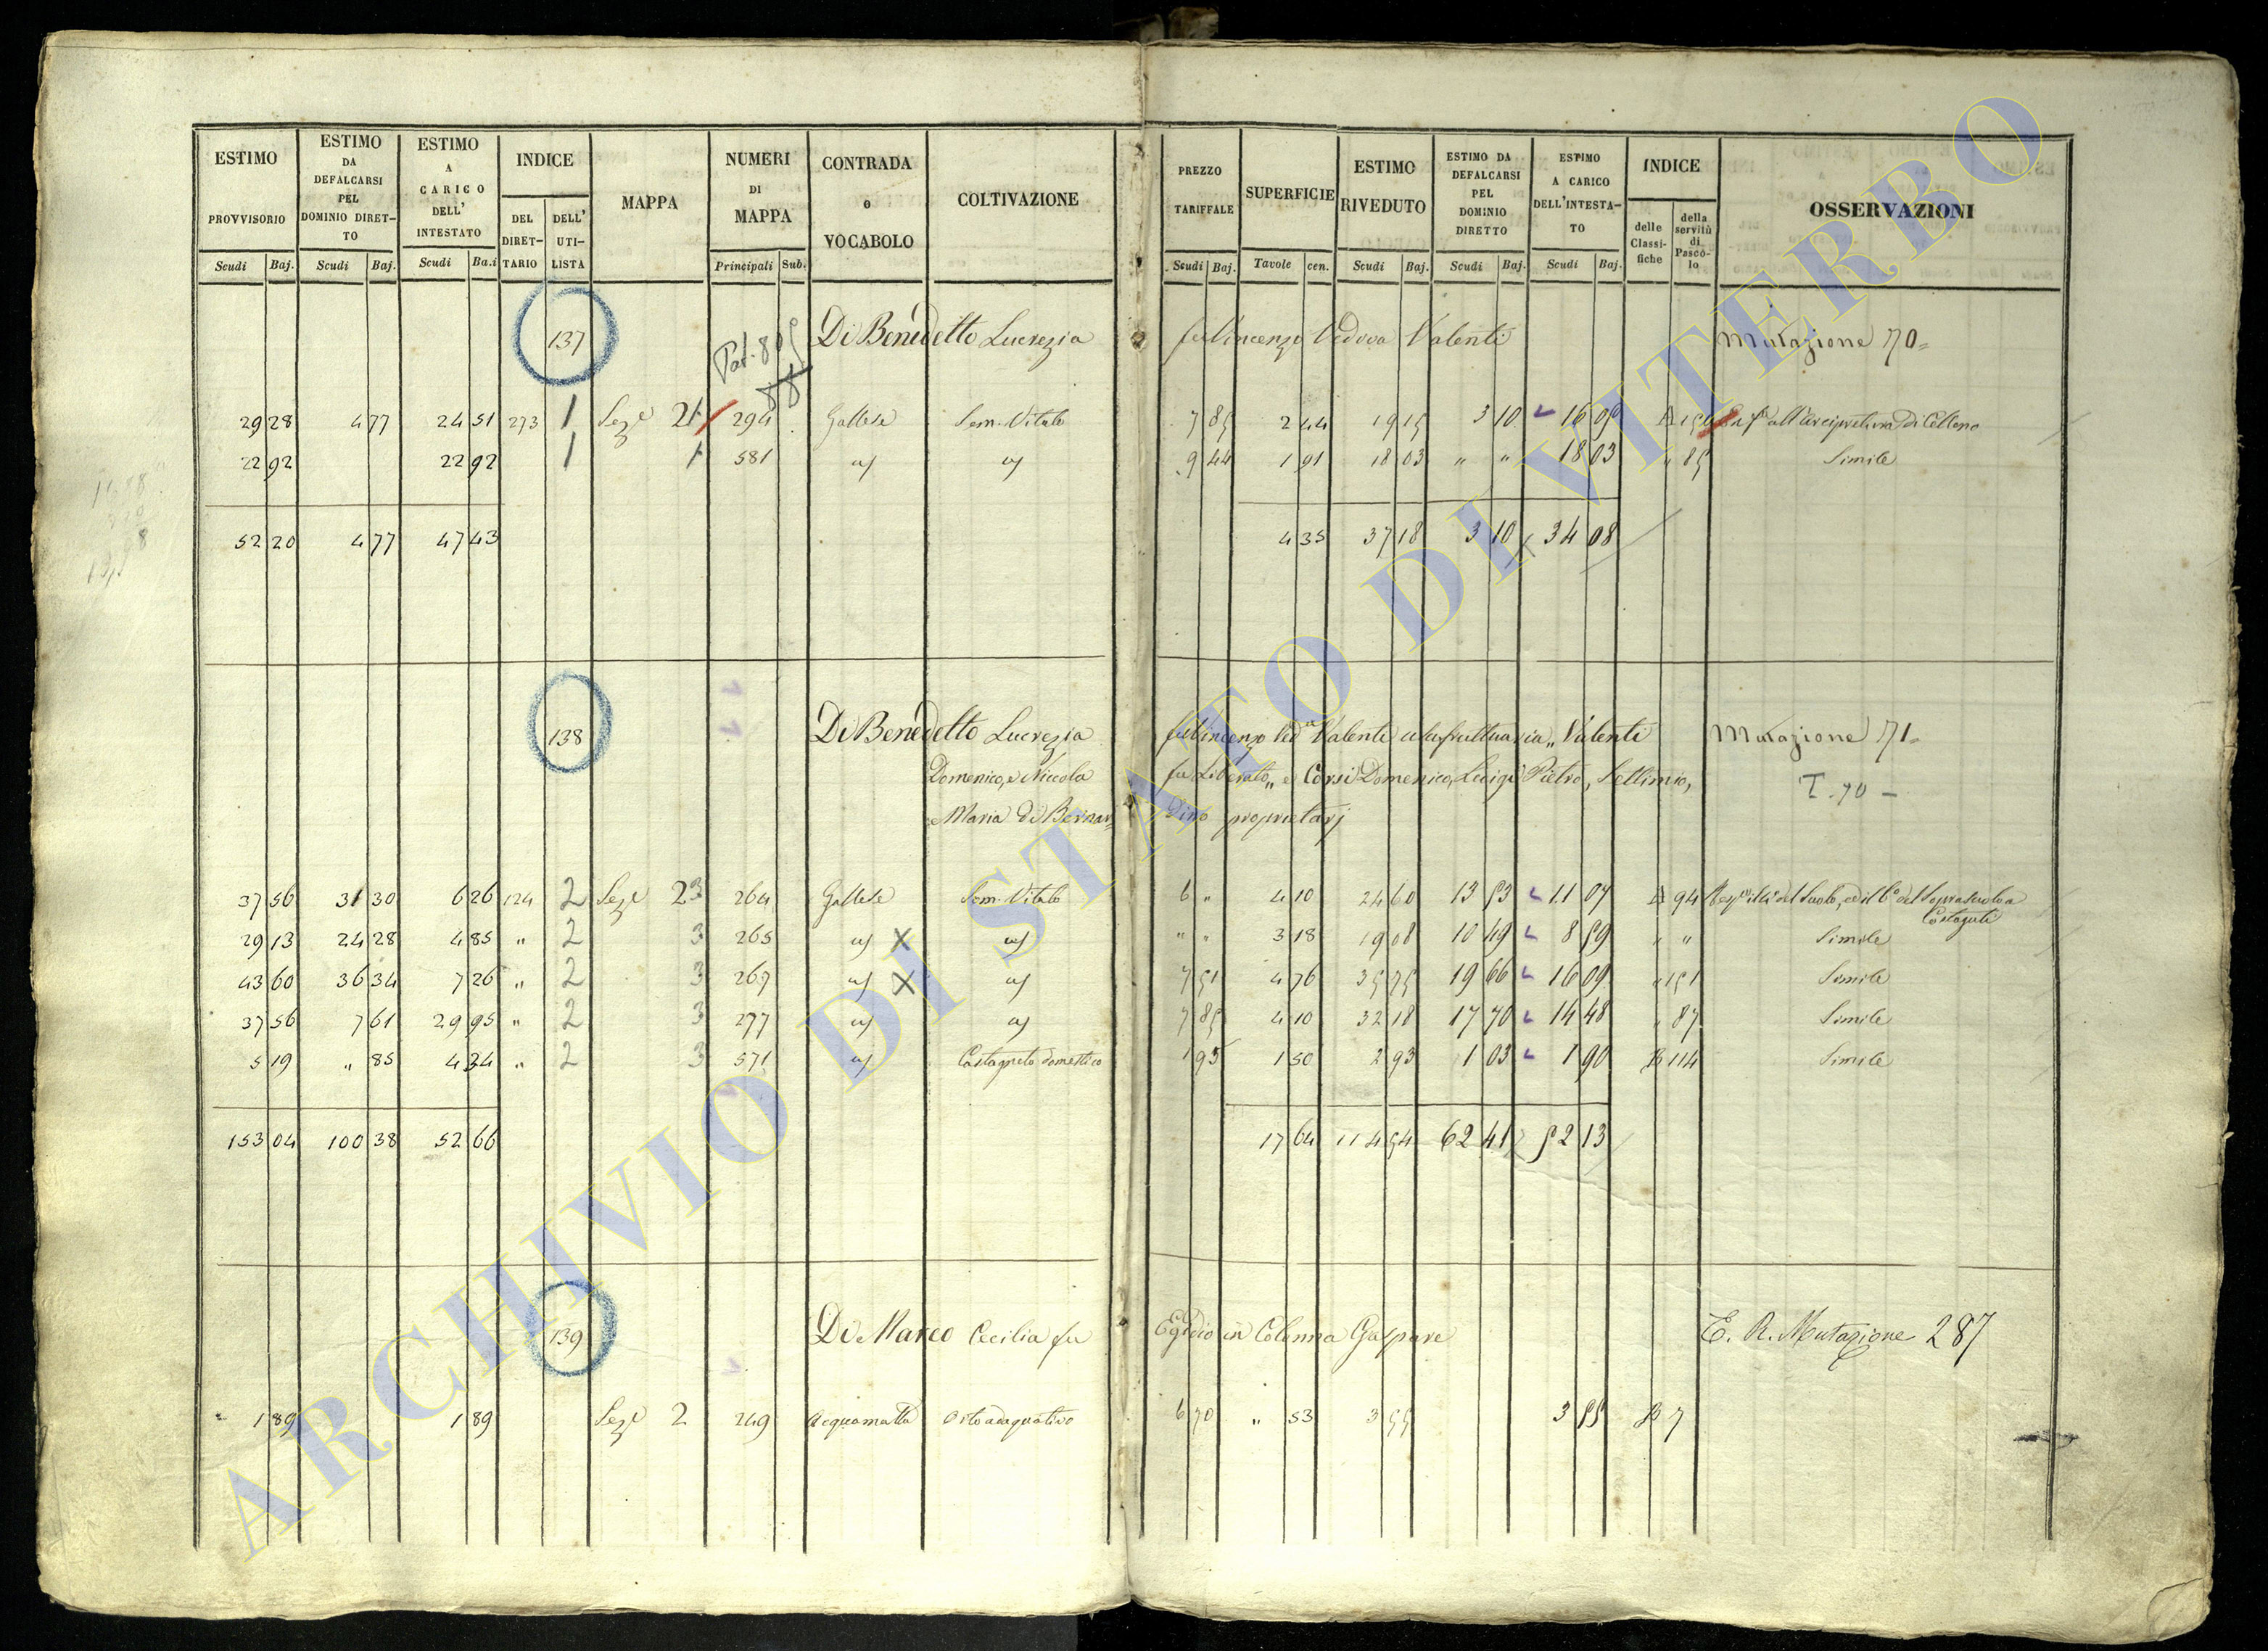 ESTIMO PROVVISORIO
ESTIMO DA DEFALCARSI PEL DOMINIO DIRETTO
ESTIMO A CARICO DELL' INTESTATO
INDICE
DEL DIRETTARIO
DELL' UTILISTA
MAPPA
NUMERI DI MAPPA
CONTRADA o VOCABOLO
COLTIVAZIONE
PREZZO TARIFFALE
SUPERFICIE
ESTIMO RIVEDUTO
ESTIMO DA DEFALCARSI PEL DOMINIO DIRETTO
ESTIMO A CARICO DELL'INTESTATO
INDICE
delle Classifiche
della servitù di Pascolo
OSSERVAZIONI
Scudi Baj. Scudi Baj. Scudi Ba.i Principali Sub. Scudi Baj. Tavole cen. Scudi Baj. Scudi Baj. Scudi Baj.
137 Di Benedetto Lucrezia fu Vincenzo Vedova Valenti Mutazione 70
29 28 4 77 24 51 273 1 Sez.e 2 1 294 Gallese Sem. Vitato 7 85 2 44 19 15 3 10 16 05 all'Arcipretura di Celleno
22 92 22 92 1 1 581 9 44 1 91 18 03 " " 18 03 " 85 Simile
52 20 4 77 47 43 4 35 37 18 3 10 34 08
138 Di Benedetto Lucrezia fu Vincenzo Ved.a Valenti usufruttuaria „ Valenti Mutazione 71
Domenico, e Niccola fu Liberato „ e Corsi Domenico, Luigi Pietro, Settimio, T. 70 -
Maria di Bernardino proprietarj
37 56 31 30 6 26 124 2 Sez.e 2 3 264 Gallese Sem. Vitato 6 " 4 10 24 60 13 53 11 07 A 94 del Suolo, ed il del Soprasuolo a Costaguti
29 13 24 28 4 85 " 2 3 265 X " " 3 18 19 08 10 49 8 59 " " Simile
43 60 36 34 7 26 " 2 3 267 X 7 51 4 76 35 75 19 66 16 09 " 151 Simile
37 56 7 61 29 95 " 2 3 277 7 85 4 10 32 18 17 70 14 48 " 87 Simile
5 19 " 85 4 34 " 2 3 571 Castagneto domestico 1 95 1 50 2 93 1 03 1 90 B 114 Simile
153 04 100 38 52 66 17 64 114 54 62 41 52 13
139 Di Marco Cecilia fu Egidio in Colonna Gaspare E. R. Mutazione 287
1 89 1 89 Sez.e 2 249 Acquamatta Orto adaquativo 6 70 " 53 3 55 3 55 B 7
ARCHIVIO DI STATO DI VITERBO